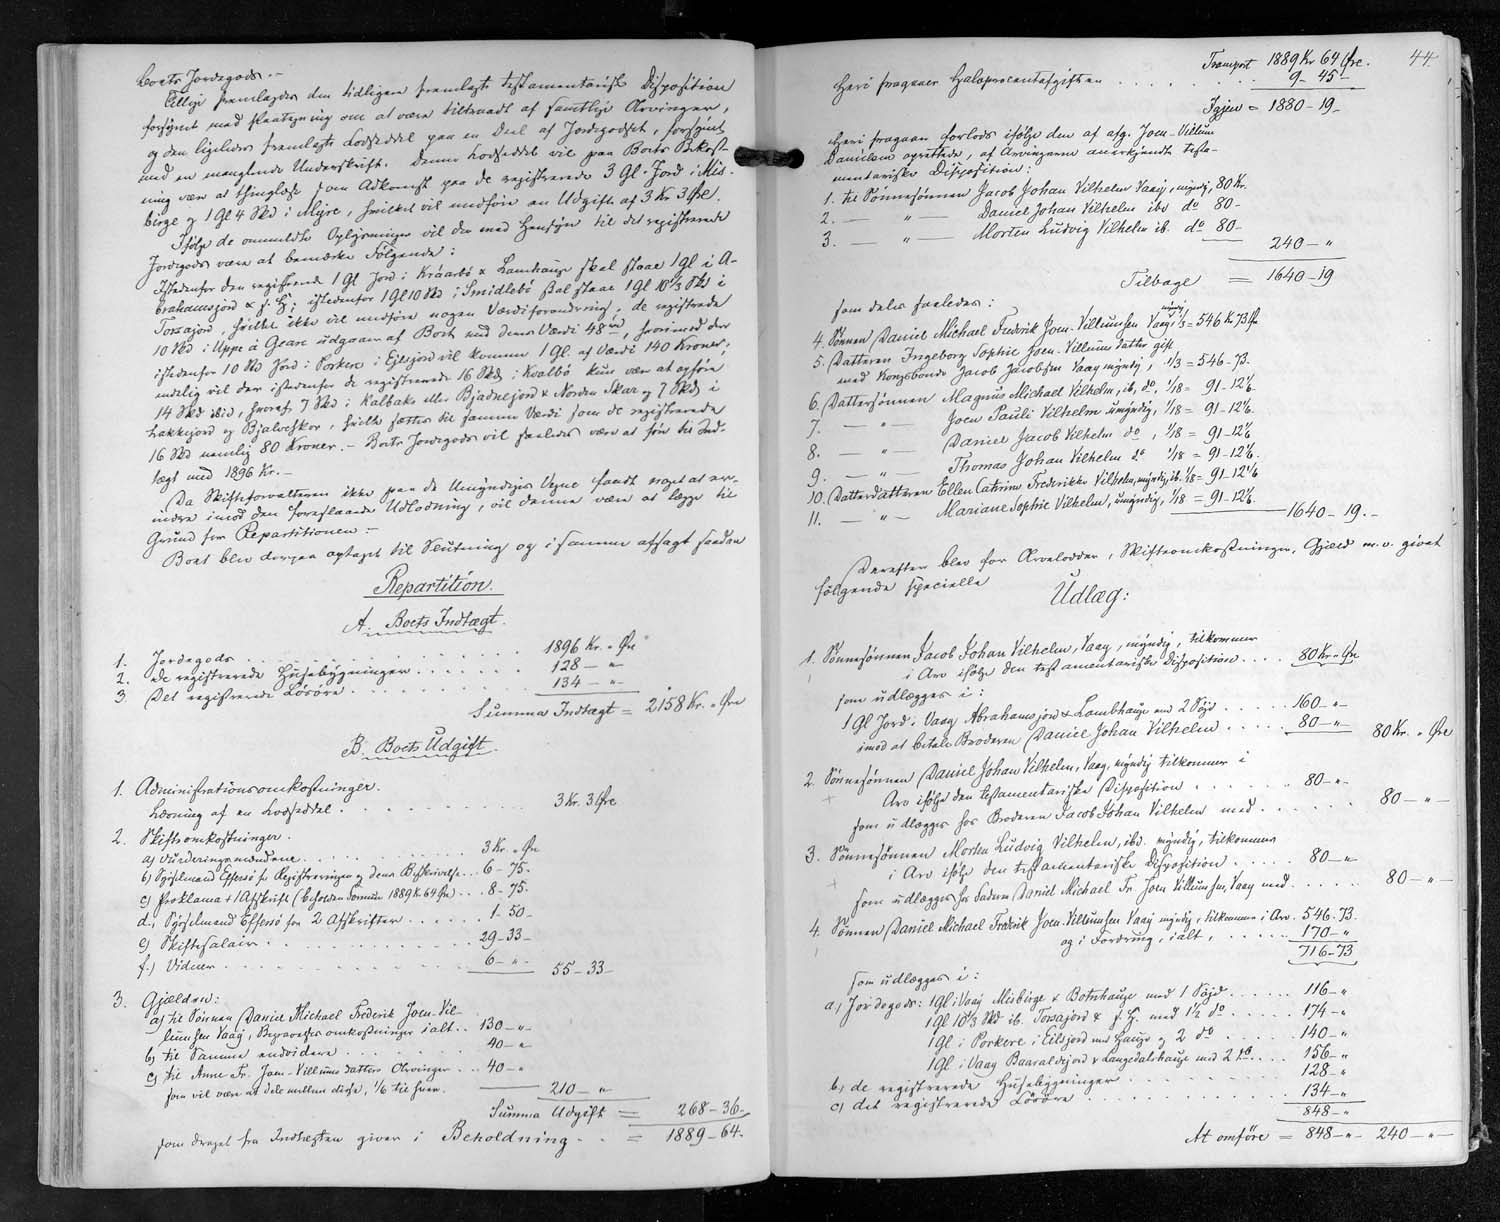 Boets Jordegods.-
Tillige fremlagdes den tidligere fremlagte testamentariske Disposition
forsynet med Paategning om at være tiltraadt af samtlige Arvinger,
og den ligeledes fremlagte Lodseddel paa en Deel af Jordegodset, forsynet
med en manglende Underskrift. Denne Lodseddel vil paa Boets Bekost-
ning være at thinglæse som Adkomst paa de registrerede 3 Gl. Jord i Mis-
birge og 1 Gl 4 Skd i Myre, hvilket vil medføre en Udgift af 3 Kr 3 Øre.
Ifølge de ommeldte Oplysninger vil der med Hensyn til det registrerede
Jordegods være at bemærke Følgende:
Istedenfor den registrerede 1 Gl Jord i Kráarbö & Lamhauge skal staae 1 Gl i A-
brahamsjord & f. H; istedenfor 1 Gl 10 Skd i Smidlebö skal staae 1 Gl 10 1/3 Skd i
Torsajord, hvilket ikke vil medføre nogen Værdiforandring, de registrerede
10 Skd i Uppe á Geare udgaaer af Boet med deres Værdi 48 Kr, hvorimod der
istedenfor 10 Skd Jord i Porkere i Eilisjord vil komme 1 Gl. af Værdi 140 Kroner;
endelig vil der istedenfor de registrerede 16 Skd i Kvalbö kun være at opføre
14 Skd ibid, hvoraf 7 Skd i Kalbaks eller Bjadnejord & Norden Skar og 7 Skd i
Hakkejord og Bjalveskor, hvilke sættes til samme Værdi som de registrerede
16 Skd nemlig 80 Kroner. - Boets Jordegods vil saaledes være at føre til Ind-
tægt med 1896 Kr. -
Da Skifteforvalteren ikke paa de Umyndiges Vegne fandt noget at er-
indre imod den foreslaaede Udlodning, vil denne være at lægge til
Grund for Repartitionen. -
Boet blev derpaa optaget til Slutning og i samme afsagt saadan
Repartition.
A. Boets Indtægt.
1. Jordegods . . . 1896 Kr. " Øre
2. De registrerede Husebygninger . . . 128 - "
3. Det registrerede Lösöre . . . 134 - "
Summa Indtægt = 2158 Kr. " Øre
B. Boets Udgift.
1. Administrationsomkostninger.
Læsning af en Lodseddel . . . 3 Kr. 3 Øre
2. Skifteomkostninger.
a) Vurderingsmændene . . . 3 Kr. " Øre
b) Sysselmand Effersö for Registreringen og dens Beskrivelse . . 6 - 75.
c) Proklama + 1 Afskrift (Beholden Formue 1889 K. 64 Øre) . . 8 - 75.
d., Sysselmand Effersö for 2 Afskrifter . . . 1 - 50 -
e) Skiftesalair . . . 29 - 33 -
f.) Vidner . . . 6 - " - 55 - 33 -
3. Gjælden:
a) til Sønnen Daniel Michael Frederik Joen-Vil-
lumsen Vaag, Begravelsesomkostninger ialt . . 130 - "
b) til Samme endvidere . . . 40 - "
c) til Anne Fr. Joen-Villums datters Arvinger . . . 40 - "
som vil være at dele mellem disse, 1/6 til hver. 210 - "
Summa Udgift = 268 - 36 -
som draget fra Indtægten giver i Beholdning . . = 1889 - 64.
44.
Transport 1889 Kr 64 Øre.
Heri fragaaer Halvprocentafgiften . . . 9 - 45 -
Igjen = 1880 - 19 -
Heri fragaaer forlods ifølge den af afg. Joen-Villum
Danielsen oprettede, af Arvingerne anerkjendte testa-
mentariske Disposition:
1. til Sønnesønnen Jacob Johan Vilhelm Vaag, myndig, 80 Kr.
2. - " - Daniel Johan Vilhelm ibd do 80 -
3. - " - Morten Ludvig Vilhelm ib. do 80 -
240 - "
Tilbage = 1640 - 19
som deles saaledes:
4. Sønnen Daniel Michael Frederik Joen-Villumsen Vaag myndig 1/3 = 546 Kr. 73 Øre
5. Datteren Ingeborg Sophie Joen-Villums datter gift
med Kongsbonde Jacob Jacobsen Vaag myndig, 1/3 = 546 - 73.
6. Dattersønnen Magnus Michael Vilhelm, ib, do, 1/18 = 91 - 12 1/6.
7. - " - Joen Pauli Vilhelm umyndig, 1/18 = 91 - 12 1/6.
8. - " - Daniel Jacob Vilhelm do, 1/18 = 91 - 12 1/6
9. - " - Thomas Johan Vilhelm do 1/18 = 91 - 12 1/6.
10. Datterdatteren Ellen Catrine Frederikke Vilhelm, myndig, ib. 1/18 = 91 - 12 1/6
11. - " - Mariane Sophie Vilhelm, umyndig, 1/18 = 91 - 12 1/6.
1640 - 19. -
Derefter blev for Arvelodder, Skifteomkostninger, Gjæld m.v. givet
følgende specielle
Udlæg:
1. Sønnesønnen Jacob Johan Vilhelm, Vaag, myndig, tilkommer
i Arv ifølge den testamentariske Disposition . . . 80 Kr " Øre
som udlægges i:
1 Gl Jord i Vaag Abrahamsjord & Lambhauge med 2 Søjd . . . 160 - "
imod at betale Broderen Daniel Johan Vilhelm . . . 80 - " 80 Kr. " Øre
2. Sønnesønnen Daniel Johan Vilhelm, Vaag, myndig tilkommer i
Arv ifølge den testamentariske Disposition . . . 80 - "
som udlægges hos Broderen Jacob Johan Vilhelm med . . . 80 - "
3. Sønnesønnen Morten Ludvig Vilhelm, ibd. myndig, tilkommer
i Arv ifølge den testamentariske Disposition . . . 80 - "
som udlægges hos Faderen Daniel Michael Fr. Joen Villumsen, Vaag med . . . 80 - "
4. Sønnen Daniel Michael Fredrik Joen-Villumsen Vaag myndig, tilkommer i Arv. 546 - 73.
og i Fordring, ialt, . . . 170 - "
716 - 73
som udlægges i:
a, Jordegods: 1 Gl i Vaag Misbirge & Botnhauge med 1 Søjd . . . 116 - "
1 Gl 10 1/3 Skd ib. Torsajord & f. H. med 1 1/2 do . . . 174 - "
1 Gl i Porkere i Eilsjord med Hauge og 2 do . . . 140 - "
1 Gl i Vaag Baaraldejord & Langedalshauge med 2 do . . . 156 - "
b, de registrerede Husebygninger . . . 128 - "
c, det registrerede Lösöre . . . 134 - "
848 - "
At omföre = 848 - " 240 - " -